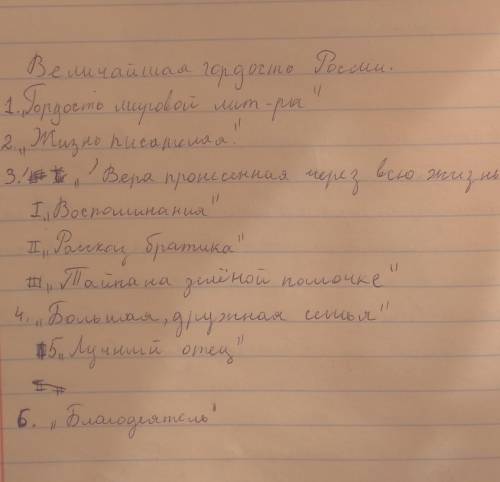 Величайшая гордость России.
1. „Гордость мировой лит-ры"
2. „Жизнь писателя."
3. „Вера пронесенная через всю жизнь
I „Воспоминания"
II „Рассказ братика"
III „Тайна на зелёной палочке"
4. „Большая, дружная семья"
5 „Лучший отец"
6. „Благодеятель"